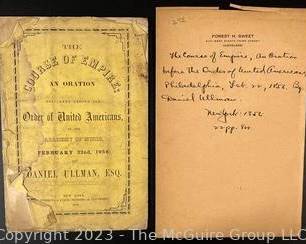 THE
COURSE OF EMPIRE;
AN ORATION
DELIVERED BEFORE THE
Order of United Americans,
AT THE
ACADEMY OF MUSIC,
FEBRUARY 22nd, 1856,
BY
DANIEL ULLMAN, ESQ.
NEW YORK:
FOREST H. SWEET
The Course of Empire, An Oration
before the Order of United Americans,
Philadelphia, Feb. 22, 1856. By
Daniel Ullman.
New York: 1856
22pp. 8vo.
Copyright 2023 - The McGuire Group LLC